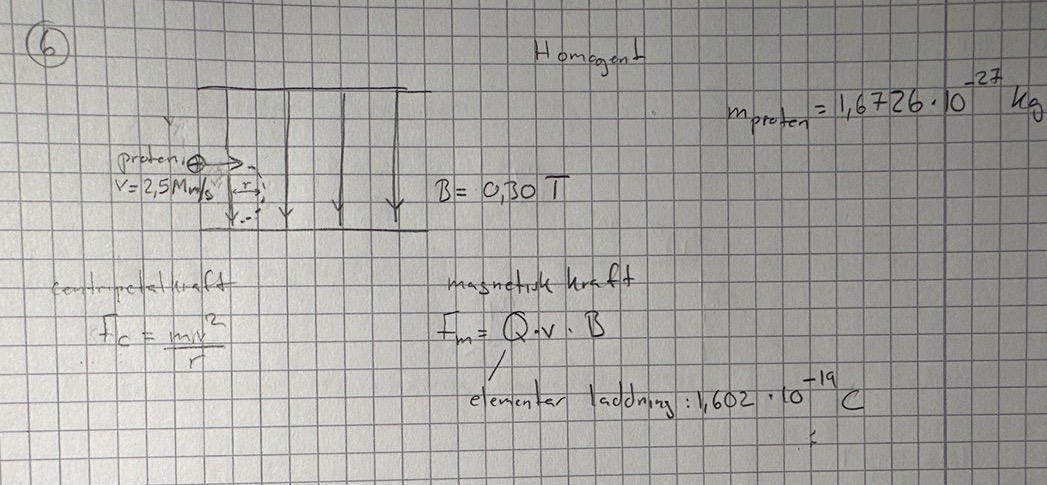 6
Homogent
m_proton = 1,6726 · 10^-27 kg
proton ⊕
v = 2,5 Mm/s
r
B = 0,30 T
centripetalkraft
magnetisk kraft
F_c = mv^2/r
F_m = Q · v · B
elementar laddning : 1,602 · 10^-19 C